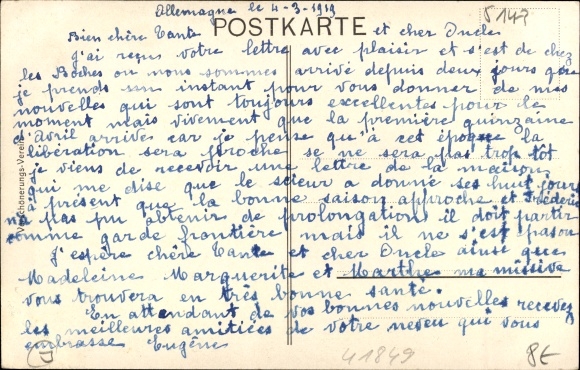 Allemagne le 4-3-1919
POSTKARTE
5143
Bien chère Tante et cher Oncle
J'ai reçus votre lettre avec plaisir et s'est de chez
les Boches ou nous sommes arrivé depuis deux jours que
je prends un instant pour vous donner de mes
nouvelles qui sont toujours excellentes pour le
moment mais vivement que la première quinzaine
d'Avril arrive car je pense qu'à cet époque la
libération sera proche se ne sera pas trop tôt
je viens de recevoir une lettre de la maison
qui me dise que le scieur a donné ses huit jours
à présent que la bonne saison approche et Frédéric
n'a pas pu obtenir de prolongation il doit partir
comme garde frontière mais il ne s'est pas ou
J'espère chère Tante et cher Oncle ainsi que
Madeleine Marguerite et Marthe ma missive
vous trouvera en très bonne santé.
En attendant de vos bonnes nouvelles recevez
les meilleures amitiées de votre neveu qui vous
embrasse Eugène
Verschönerungs-Verein
41849
8E